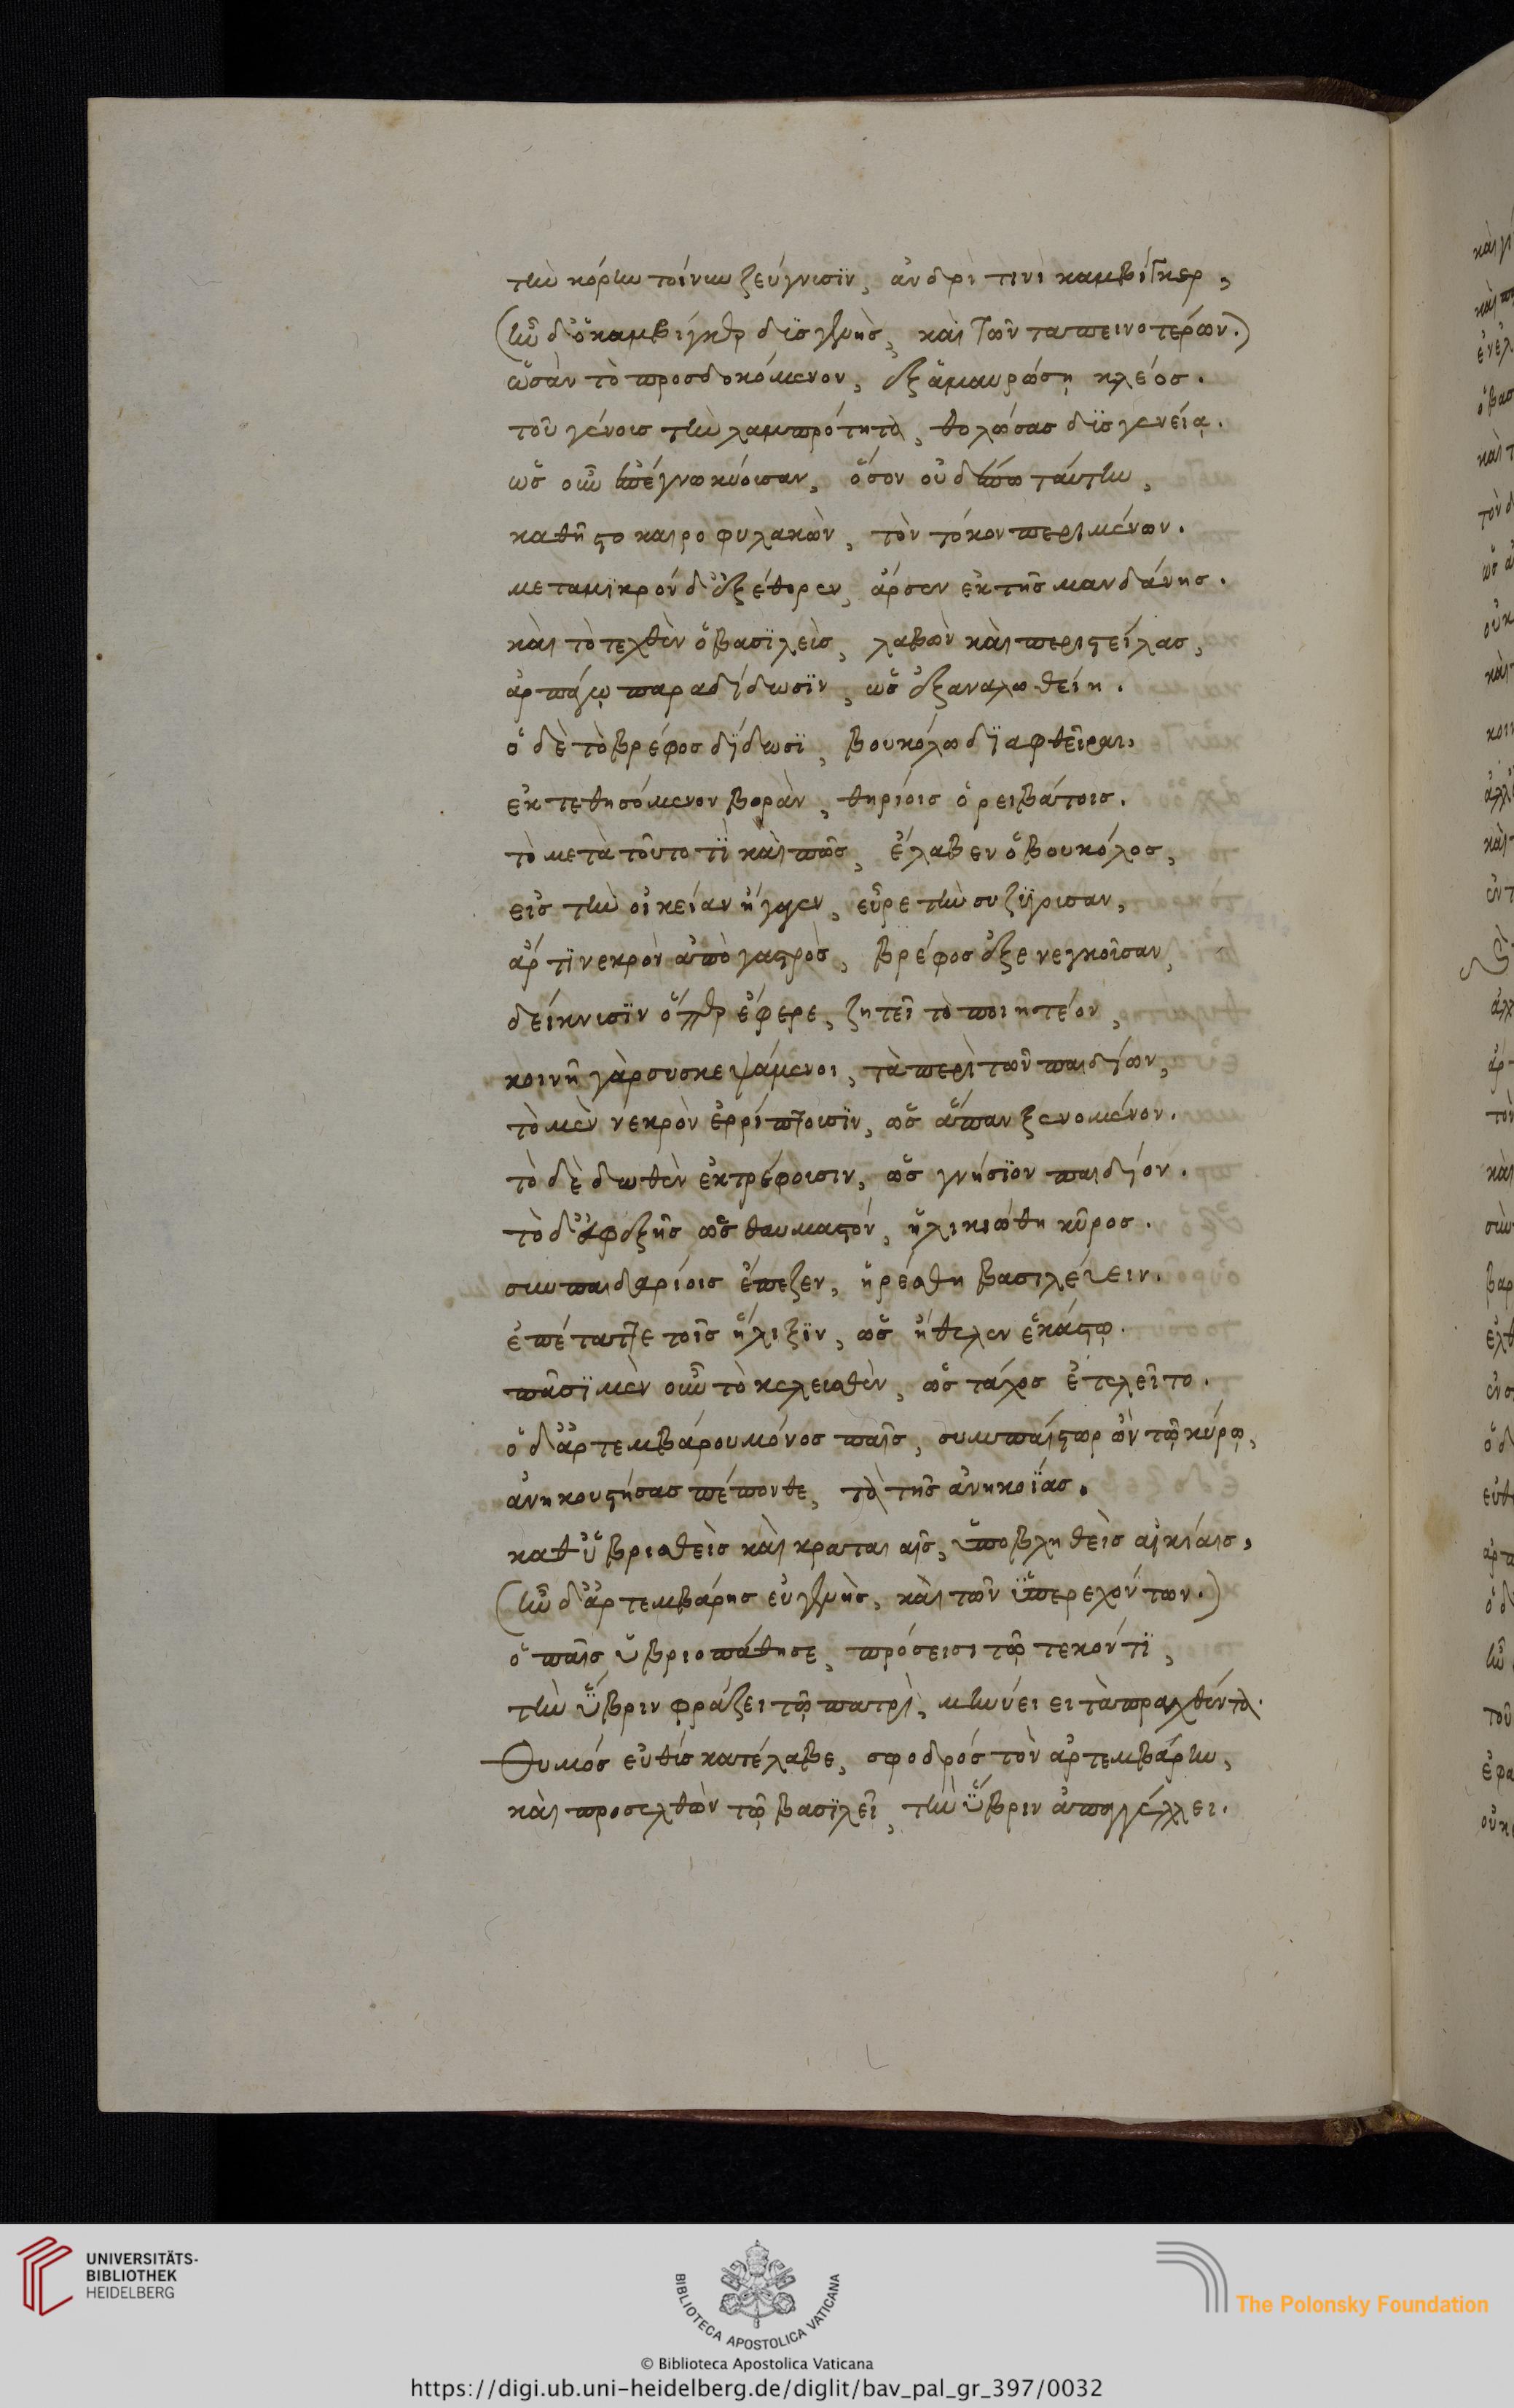 τὴν κόρην τοίνυν ζεύγνυσϊν, ἀνδρὶ τινὶ καμβίγκερ,
(ἦν δ' ὁ καμβίγκηρ δυσγενὴς, καὶ τῶν ταπεινοτέρων.)
ὡς ἂν τὸ προσδοκόμενον, ἐξαμαυρώσῃ κλέος.
τοῦ γένους τὴν λαμπρότητα, θολώσας δυσγενείᾳ.
ὡς οὖν ἐπέγνω κύουσαν, ὅσον οὐδέπω ταύτην,
καθῆστο καιροφυλακῶν, τὸν τόκον περιμένων.
μεταμϊκρόν δ' ἐξέθορεν, ἄρσεν ἐκ τῆς μανδάνης.
καὶ τὸ τεχθὲν ὁ βασϊλεὺς, λαβὼν καὶ περιστείλας,
ἁρπάγῳ παραδίδωσϊν, ὡς ἐξαναλωθείη.
ὁ δὲ τὸ βρέφος δίδωσϊ, βουκόλω δϊαφθεῖραι.
ἐκτεθησόμενον βορὰν, θηρίοις ὀρειβάτοις.
τὸ μετὰ τοῦτο τῒ καὶ πῶς, ἔλαβεν ὁ βουκόλος,
εἰς τὴν οἰκείαν ἤγαγεν, εὗρε τὴν συζϋγουσαν,
ἄρτϊ νεκρὸν ἀπὸ γαστρὸς, βρέφος ἐξενεγκοῦσαν,
δείκνυσϊν ὅπερ ἔφερε, ζητεῖ τὸ ποιητέον,
κοινῆ γὰρ συσκεψάμενοι, τὰ περὶ τῶν παιδίων,
τὸ μὲν νεκρὸν ἐρρίπτουσϊν, ὡς ἅπαν ξενομένον.
τὸ δὲ δωθὲν ἐκτρέφουσιν, ὡς γνήσϊον παιδίον.
τὸ δ' ἐφεξῆς ὡς θαυμαστόν, ἡλικιώθη κῦρος.
συν παιδαρίοις ἔπεζεν, ἡρέθη βασιλέυειν.
ἐπέταττε τοῖς ἥλιξϊν, ὡς ἤθελεν ἑκάστῳ.
πᾶσϊ μὲν οὖν τὸ κελευσθὲν, ὡς τάχος ἐτελεῖτο.
ὁ δ' ἀρτεμβάρου μόνος παῖς, συμπαίστωρ ὢν τῷ κύρῳ,
ἀνηκουστήσας πέπονθε, τὰ τῆς ἀνηκοΐας.
καθ' ὑβρισθεὶς καὶ κραταιαῖς, ὑποβληθεὶς αἰκίαις,
(ἦν δ' ἀρτεμβάρης εὐγενὴς, καὶ τῶν ὑπερεχόντων.)
ὁ παῖς ὑβριοπάθησε, πρόσεισι τῷ τεκόντϊ,
τὴν ὕβριν φράζει τῷ πατρὶ, μηνύει τὰ πραχθέντα.
Θυμός εὐθὺς κατέλαβε, σφοδρός τὸν ἀρτεμβάρην,
καὶ προσελθὼν τῷ βασϊλεῖ, τὴν ὕβριν ἀπαγγέλλει.
UNIVERSITÄTS-
BIBLIOTHEK
HEIDELBERG
BIBLIOTECA APOSTOLICA VATICANA
The Polonsky Foundation
© Biblioteca Apostolica Vaticana
https://digi.ub.uni-heidelberg.de/diglit/bav_pal_gr_397/0032